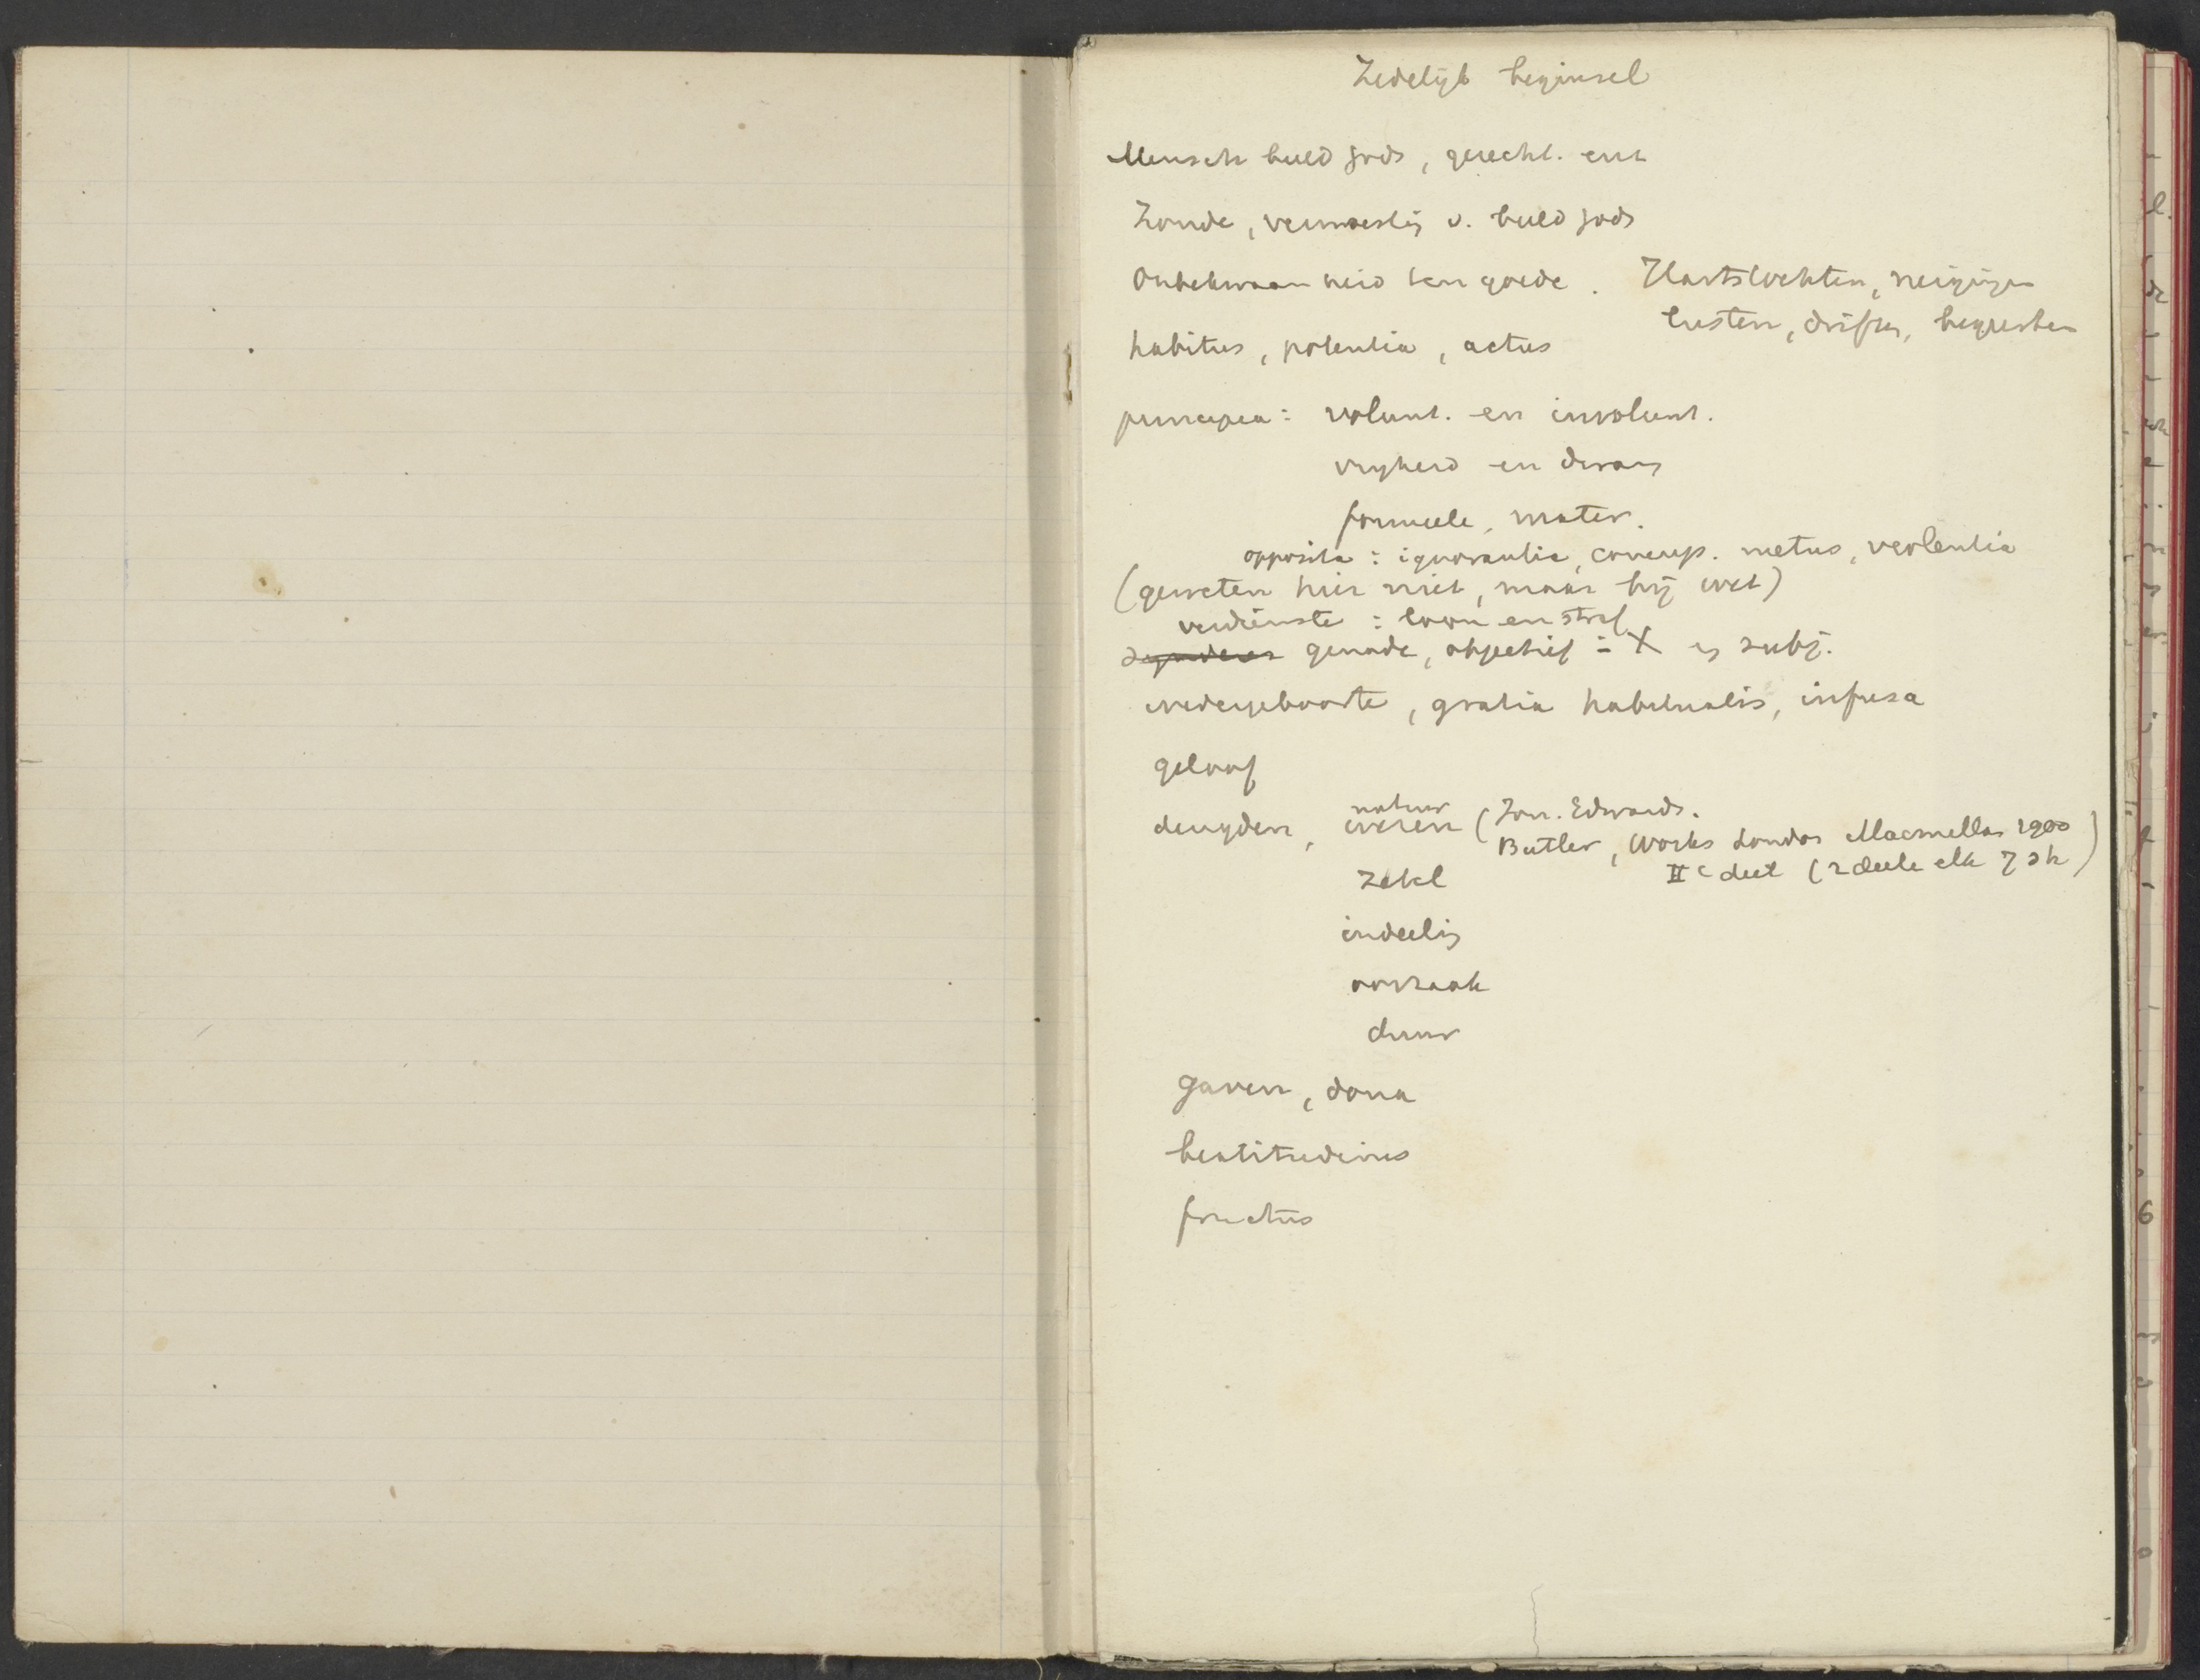 Zedelijk beginsel
Mensch beeld Gods, gerecht. enz
Zonde, verwoestig v. beeld Gods
Onbekwaamheid ten goede. Hartstochten, neigigen
lusten, driften, begeerten
habitus, potentia, actus
principia: volunt. en involunt.
vrijheid en dwang
formeele, mater.
opposita: ignorantia, concup. metus, violentia
(geweten hier niet, maar bij wet)
verdienste: loon en straf
genade, objectief = X en subj.
wedergeboorte, gratia habitualis, infusa
geloof
deugden, natuur
wezen (Jon. Edwards.
Butler, Works London Macmillan 1900
IIe deel (2 deele elk 7 sh)
zetel
indeelig
oorzaak
duur
gaven, dona
beatitudines
fructus